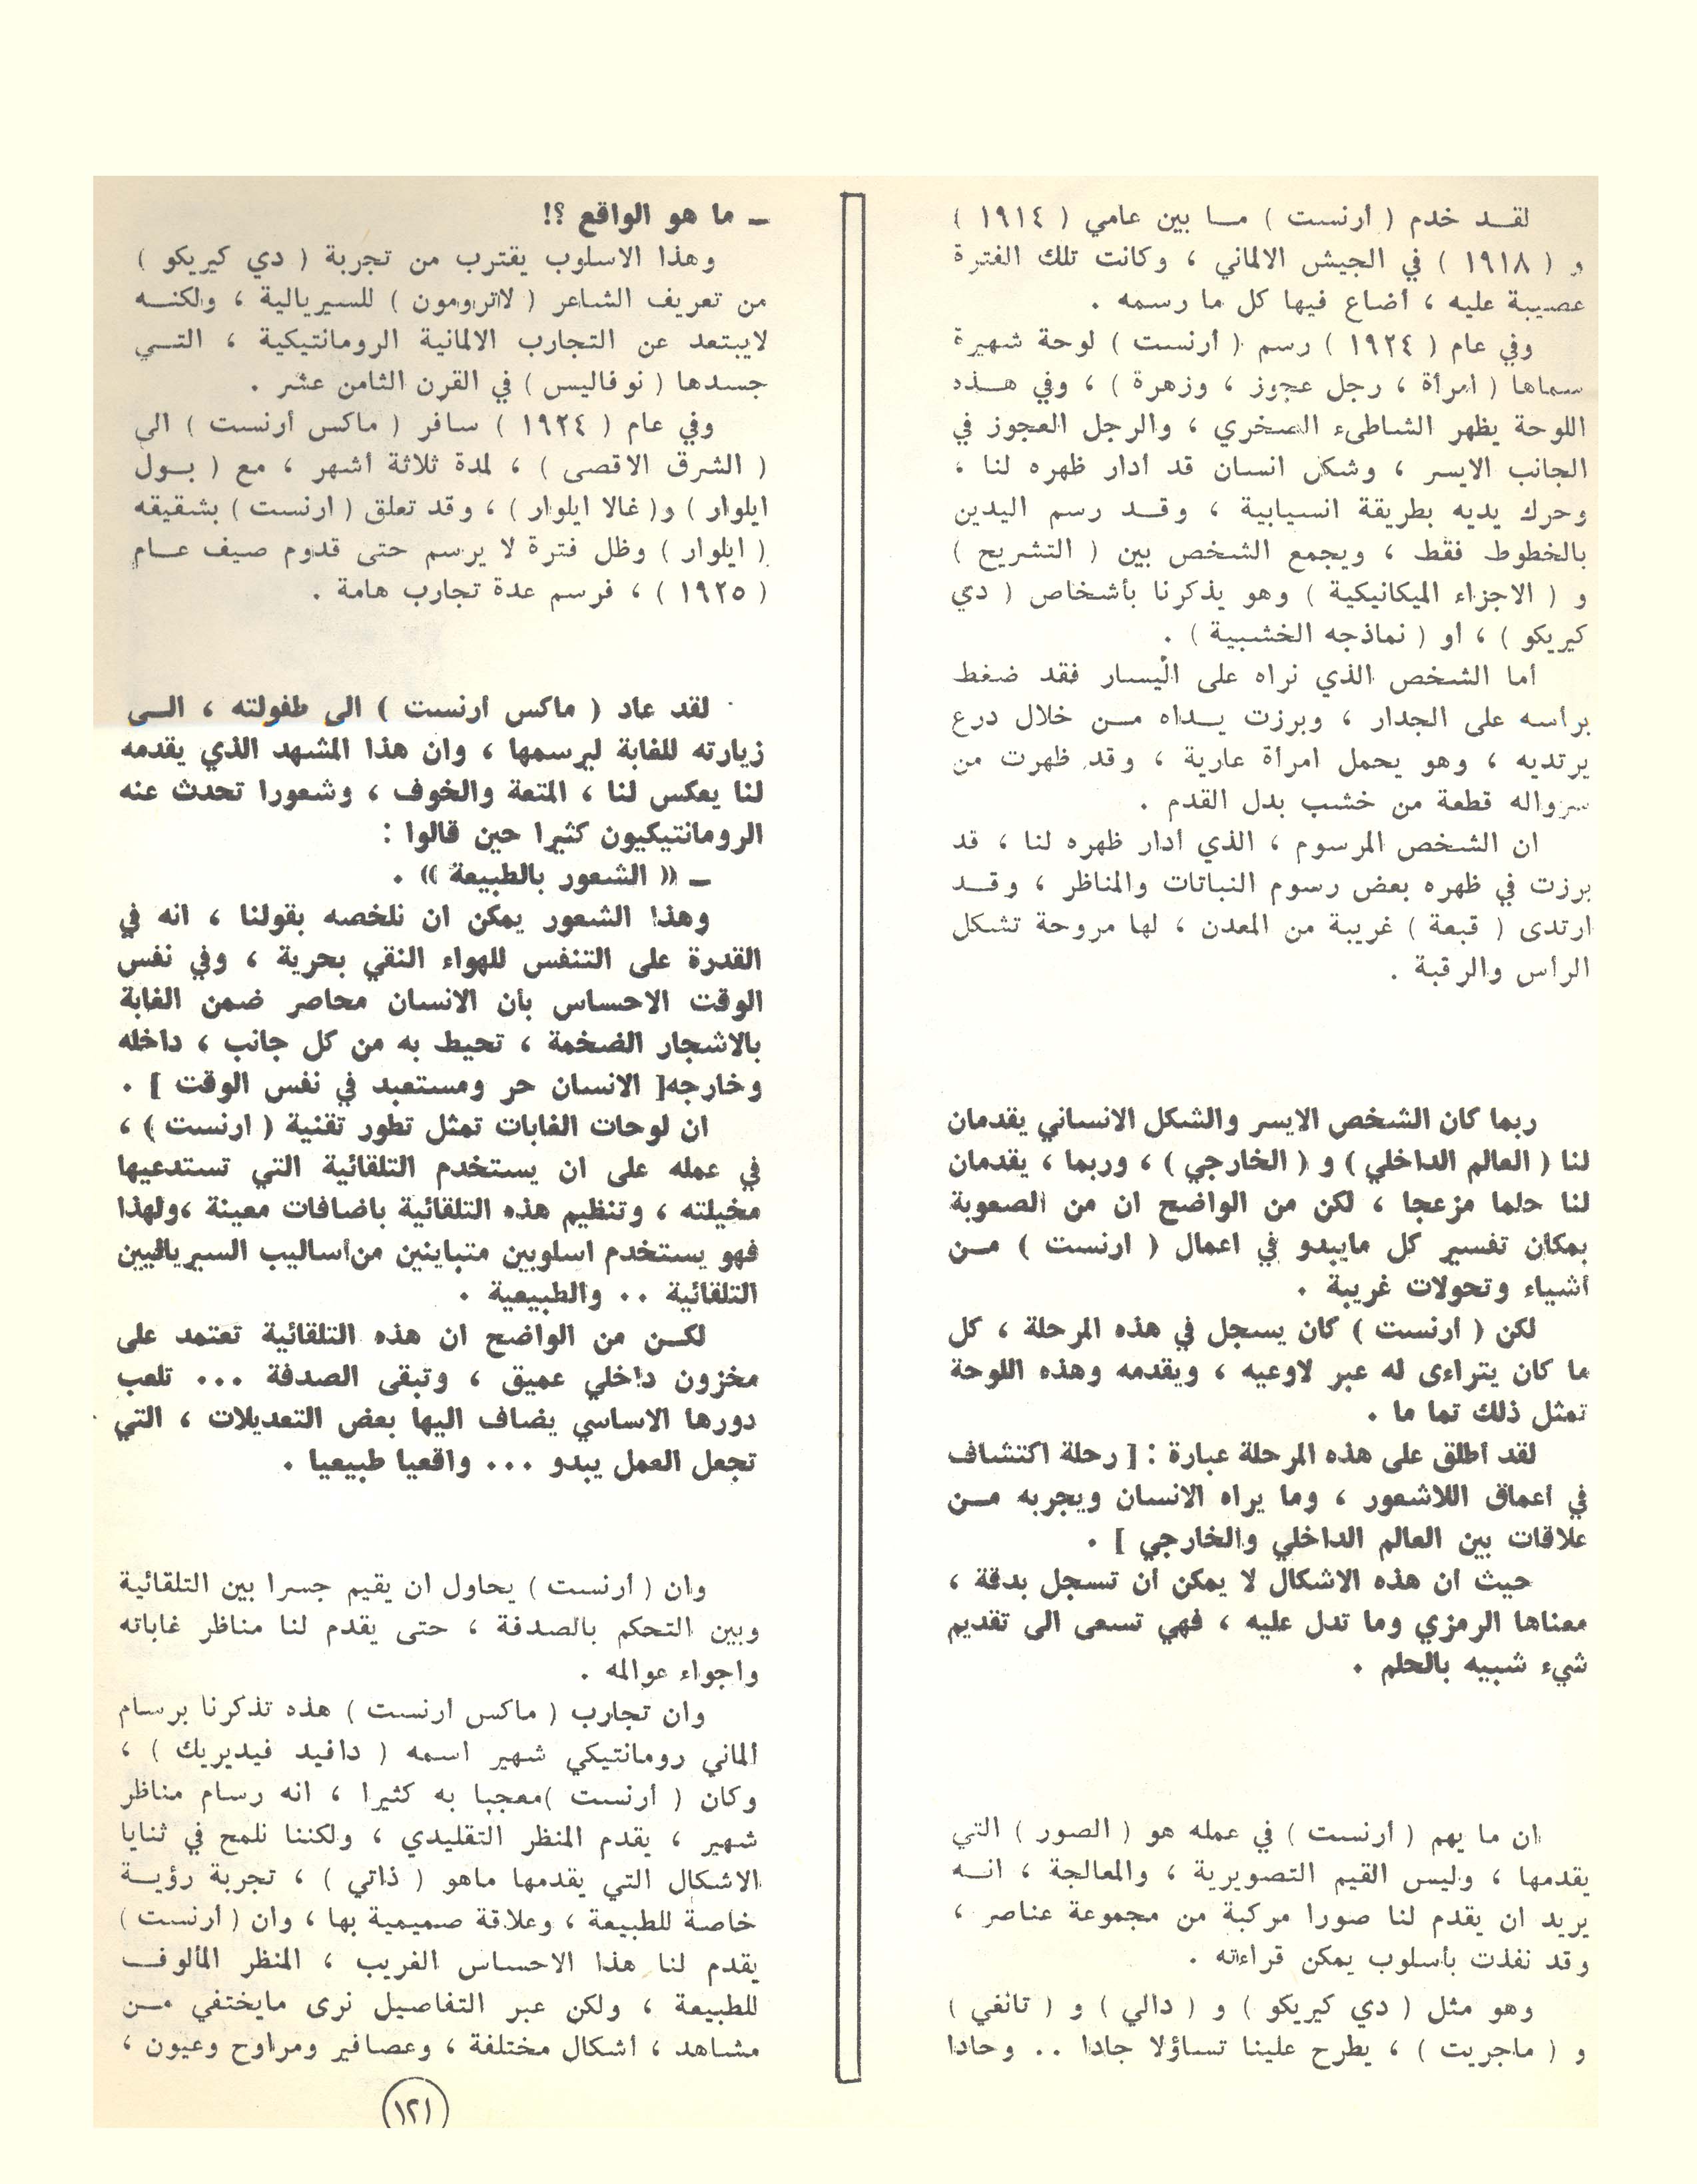 لقـــد خدم ( أرنست ) مـــا بين عامي ( ١٩١٤ )
و ( ١٩١٨ ) في الجيش الالماني ، وكانت تلك الفترة
عصيبة عليه ، أضاع فيها كل ما رسمه .
وفي عام ( ١٩٢٤ ) رسم ( أرنست ) لوحة شهيرة
سماها ( امرأة ، رجل عجوز ، وزهرة ) ، وفي هـــذه
اللوحة يظهر الشاطىء الصخري ، والرجل العجوز في
الجانب الايسر ، وشكل انسان قد أدار ظهره لنا ،
وحرك يديه بطريقة انسيابية ، وقـــد رسم اليدين
بالخطوط فقط ، ويجمع الشخص بين ( التشريح )
و ( الاجزاء الميكانيكية ) وهو يذكرنا بأشخاص ( دي
كيريكو ) ، أو ( نماذجه الخشبية ) .
أما الشخص الذي نراه على اليسار فقد ضغط
برأسه على الجدار ، وبرزت يـــداه مـــن خلال درع
يرتديه ، وهو يحمل امرأة عارية ، وقد ظهرت من
سرواله قطعة من خشب بدل القدم .
ان الشخص المرسوم ، الذي أدار ظهره لنا ، قد
برزت في ظهره بعض رسوم النباتات والمناظر ، وقـــد
ارتدى ( قبعة ) غريبة من المعدن ، لها مروحة تشكل
الرأس والرقبة .
ربما كان الشخص الايسر والشكل الانساني يقدمان
لنا ( العالم الداخلي ) و ( الخارجي ) ، وربما ، يقدمان
لنا حلما مزعجا ، لكن من الواضح ان من الصعوبة
بمكان تفسير كل مايبدو في اعمال ( ارنست ) مـــن
أشياء وتحولات غريبة .
لكن ( أرنست ) كان يسجل في هذه المرحلة ، كل
ما كان يتراءى له عبر لاوعيه ، ويقدمه وهذه اللوحة
تمثل ذلك تما ما .
لقد أطلق على هذه المرحلة عبارة : [ رحلة اكتشاف
في أعماق اللاشعور ، وما يراه الانسان ويجربه مـــن
علاقات بين العالم الداخلي والخارجي ] .
حيث أن هذه الاشكال لا يمكن أن تسجل بدقة ،
معناها الرمزي وما تدل عليه ، فهي تسعى الى تقديم
شيء شبيه بالحلم .
ان ما يهم ( أرنست ) في عمله هو ( الصور ) التي
يقدمها ، وليس القيم التصويرية ، والمعالجة ، انـــه
يريد ان يقدم لنا صورا مركبة من مجموعة عناصر ،
وقد نفذت بأسلوب يمكن قراءته .
وهو مثل ( دي كيريكو ) و ( دالي ) و ( تانغي )
و ( ماجريت ) ، يطرح علينا تساؤلا جادا .. وحادا
ـ ما هو الواقع ؟!
وهذا الاسلوب يقترب من تجربة ( دي كيريكو )
من تعريف الشاعر ( لاترومون ) للسيريالية ، ولكنـــه
لايبتعد عن التجارب الالمانية الرومانتيكية ، التـــي
جسدها ( نوفاليس ) في القرن الثامن عشر .
وفي عام ( ١٩٢٤ ) سافر ( ماكس أرنست ) الى
( الشرق الاقصى ) ، لمدة ثلاثة أشهر ، مع ( بـــول
ايلوار ) و( غالا ايلوار ) ، وقد تعلق ( ارنست ) بشقيقه
( ايلوار ) وظل فترة لا يرسم حتى قدوم صيف عـــام
( ١٩٢٥ ) ، فرسم عدة تجارب هامة .
لقد عاد ( ماكس أرنست ) الى طفولته ، الـــى
زيارته للغابة ليرسمها ، وان هذا المشهد الذي يقدمه
لنا يعكس لنا ، المتعة والخوف ، وشعورا تحدث عنه
الرومانتيكيون كثيرا حين قالوا :
ـ (( الشعور بالطبيعة )) .
وهذا الشعور يمكن ان نلخصه بقولنا ، انه في
القدرة على التنفس للهواء النقي بحرية ، وفي نفس
الوقت الاحساس بأن الانسان محاصر ضمن الغابة
بالاشجار الضخمة ، تحيط به من كل جانب ، داخله
وخارجه[ الانسان حر ومستعبد في نفس الوقت ] .
ان لوحات الغابات تمثل تطور تقنية ( ارنست ) ،
في عمله على ان يستخدم التلقائية التي تستدعيها
مخيلته ، وتنظيم هذه التلقائية باضافات معينة ،ولهذا
فهو يستخدم اسلوبين متباينين من أساليب السيرياليين
التلقائية .. والطبيعية .
لكـــن من الواضح ان هذه التلقائية تعتمد على
مخزون داخلي عميق ، وتبقى الصدفة ... تلعب
دورها الاساسي يضاف اليها بعض التعديلات ، التي
تجعل العمل يبدو ... واقعيا طبيعيا .
وان ( أرنست ) يحاول ان يقيم جسرا بين التلقائية
وبين التحكم بالصدفة ، حتى يقدم لنا مناظر غاباته
واجواء عوالمه .
وان تجارب ( ماكس أرنست ) هذه تذكرنا برسام
ألماني رومانتيكي شهير اسمه ( دافيد فيديريك ) ،
وكان ( أرنست )معجبا به كثيرا ، انه رسام مناظر
شهير ، يقدم المنظر التقليدي ، ولكننا نلمح في ثنايا
الاشكال التي يقدمها ماهو ( ذاتي ) ، تجربة رؤيـــة
خاصة للطبيعة ، وعلاقة صميمية بها ، وان ( أرنست )
يقدم لنا هذا الاحساس الغريب ، المنظر المألوف
للطبيعة ، ولكن عبر التفاصيل نرى مايختفي مـــن
مشاهد ، أشكال مختلفة ، وعصافير ومراوح وعيون ،
(١٢١)